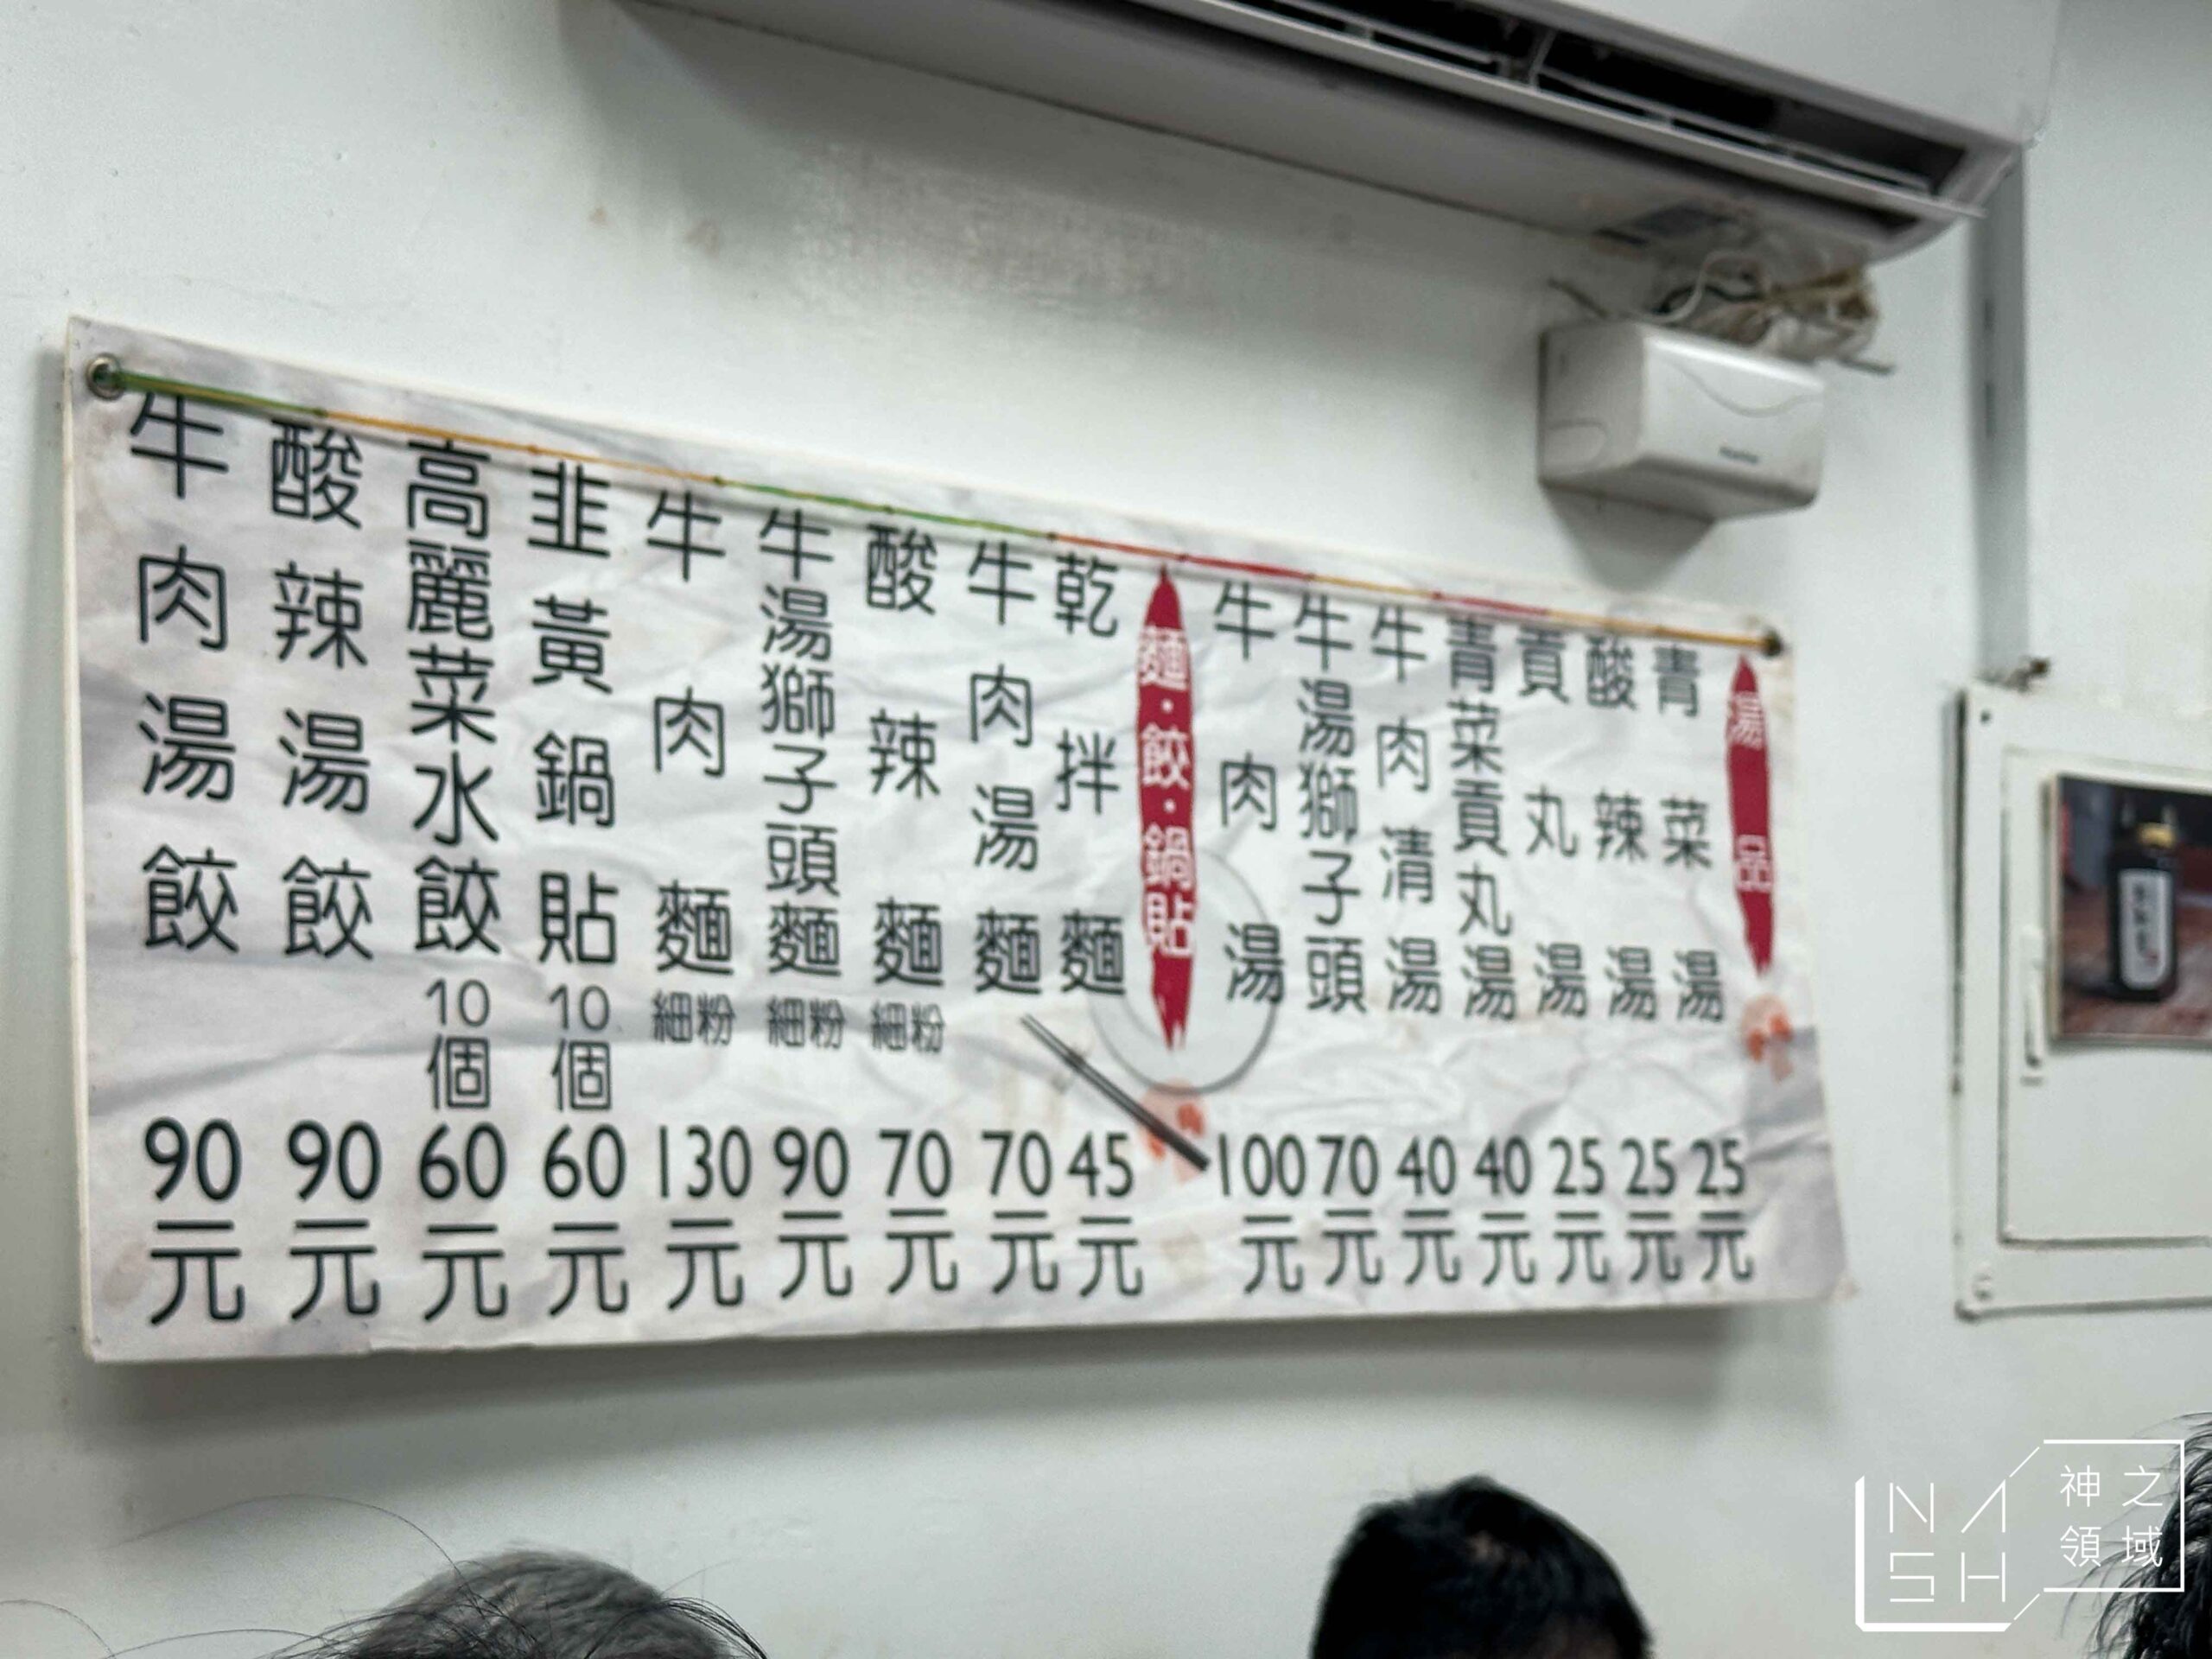 湯品
青菜湯 25元
酸辣湯 25元
貢丸湯 25元
青菜貢丸湯 40元
牛肉清湯 40元
牛湯獅子頭 70元
牛肉湯 100元
麵·餃·鍋貼
乾拌麵 45元
牛肉湯麵 70元
酸辣麵 細粉 70元
牛湯獅子頭麵 細粉 90元
牛肉麵 細粉 130元
韭黃鍋貼 10個 60元
高麗菜水餃 10個 60元
酸辣湯餃 90元
牛肉湯餃 90元
NASH
神之領域